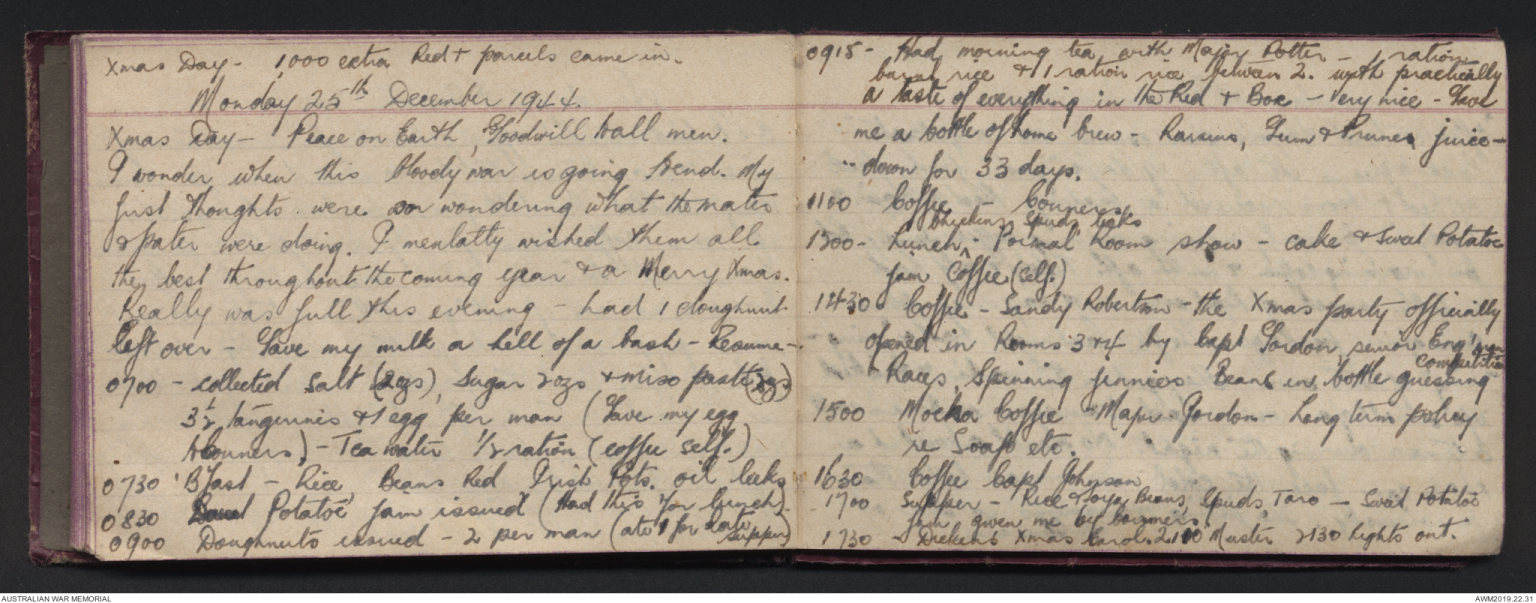 Xmas Day - 1,000 extra Red + parcels came in.
Monday 25th December 1944.
Xmas Day - Peace on Earth, Goodwill to all men.
I wonder when this bloody war is going to end. My
first thoughts were wondering what the mater
& pater were doing. I mentally wished them all
the best throughout the coming year & a Merry Xmas.
Really was full this evening - had 1 doughnut
left over - Gave my milk a hell of a bash - Resume -
0700 - collected Salt (2ozs), Sugar 2ozs & miso paste (2ozs)
3½ tangerines & 1 egg per man (Gave my egg
to Conners) - Tea water ½ ration (coffee self.)
0730 B'fast - Rice, Beans Red, Irish Pots. oil leeks
0830 Sweet Potatoe jam issued (Had this for lunch)
0900 Doughnuts issued - 2 per man (ate 1 for late supper)
0915 - Had morning tea with Major Potter - 1 ration
burnt rice & 1 ration rice between 2. with practically
a taste of everything in the Red + Box - very nice - Gave
me a bottle of home brew - Raisins, & Prunes juice -
down for 33 days.
1100 Coffee Conners.
1300 - Lunch - chicken, spuds, leeks Formal Room show - cake & Sweet Potatoe
jam Coffee (self.)
1430 Coffee - Sandy Robertson - the Xmas party officially
opened in Rooms 3 & 4 by Capt Gordon, senior Eng.
& Races, Spinning Jennies Beans in bottle guessing competition
1500 Mocha Coffee - Major Gordon - Long term policy
re Soap etc.
1630 Coffee Capt Johnson
1700 Supper - Rice & Soya Beans, Spuds, Taro - Sweet Potatoe
jam given me by Conners.
1730 - Dickens Xmas Carol. 2100 Muster 2130 Lights out.
AUSTRALIAN WAR MEMORIAL
AWM2019.22.31